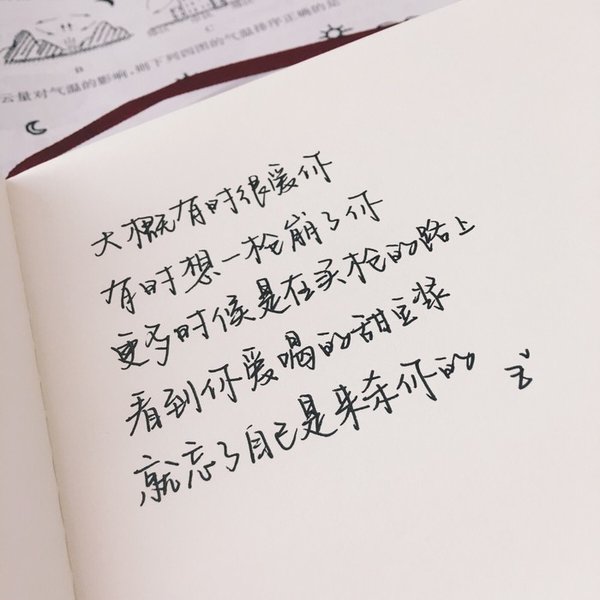 B
C
云量对气温的影响,则下列四图的气温排序正确的是
大概有时很爱你
有时想一枪崩了你
更多时候是在买枪的路上
看到你爱喝的甜豆浆
就忘了自己是来杀你的